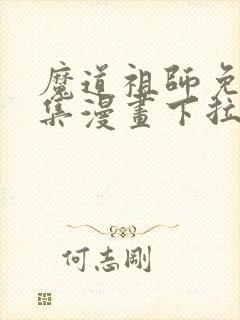 魔道祖師免
集漫畫下拉
何志剛